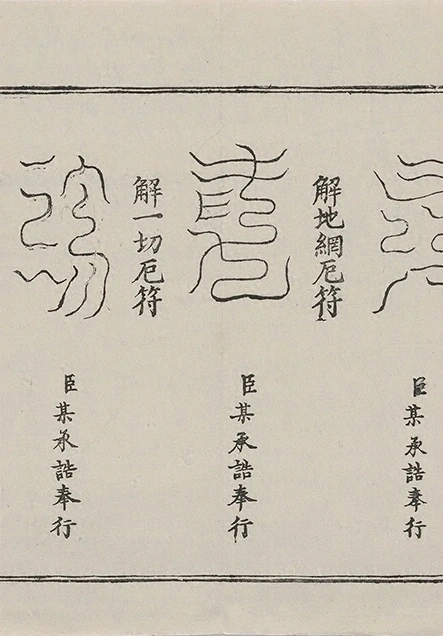 臣某承誥奉行
解地網厄符
臣某承誥奉行
解一切厄符
臣某承誥奉行